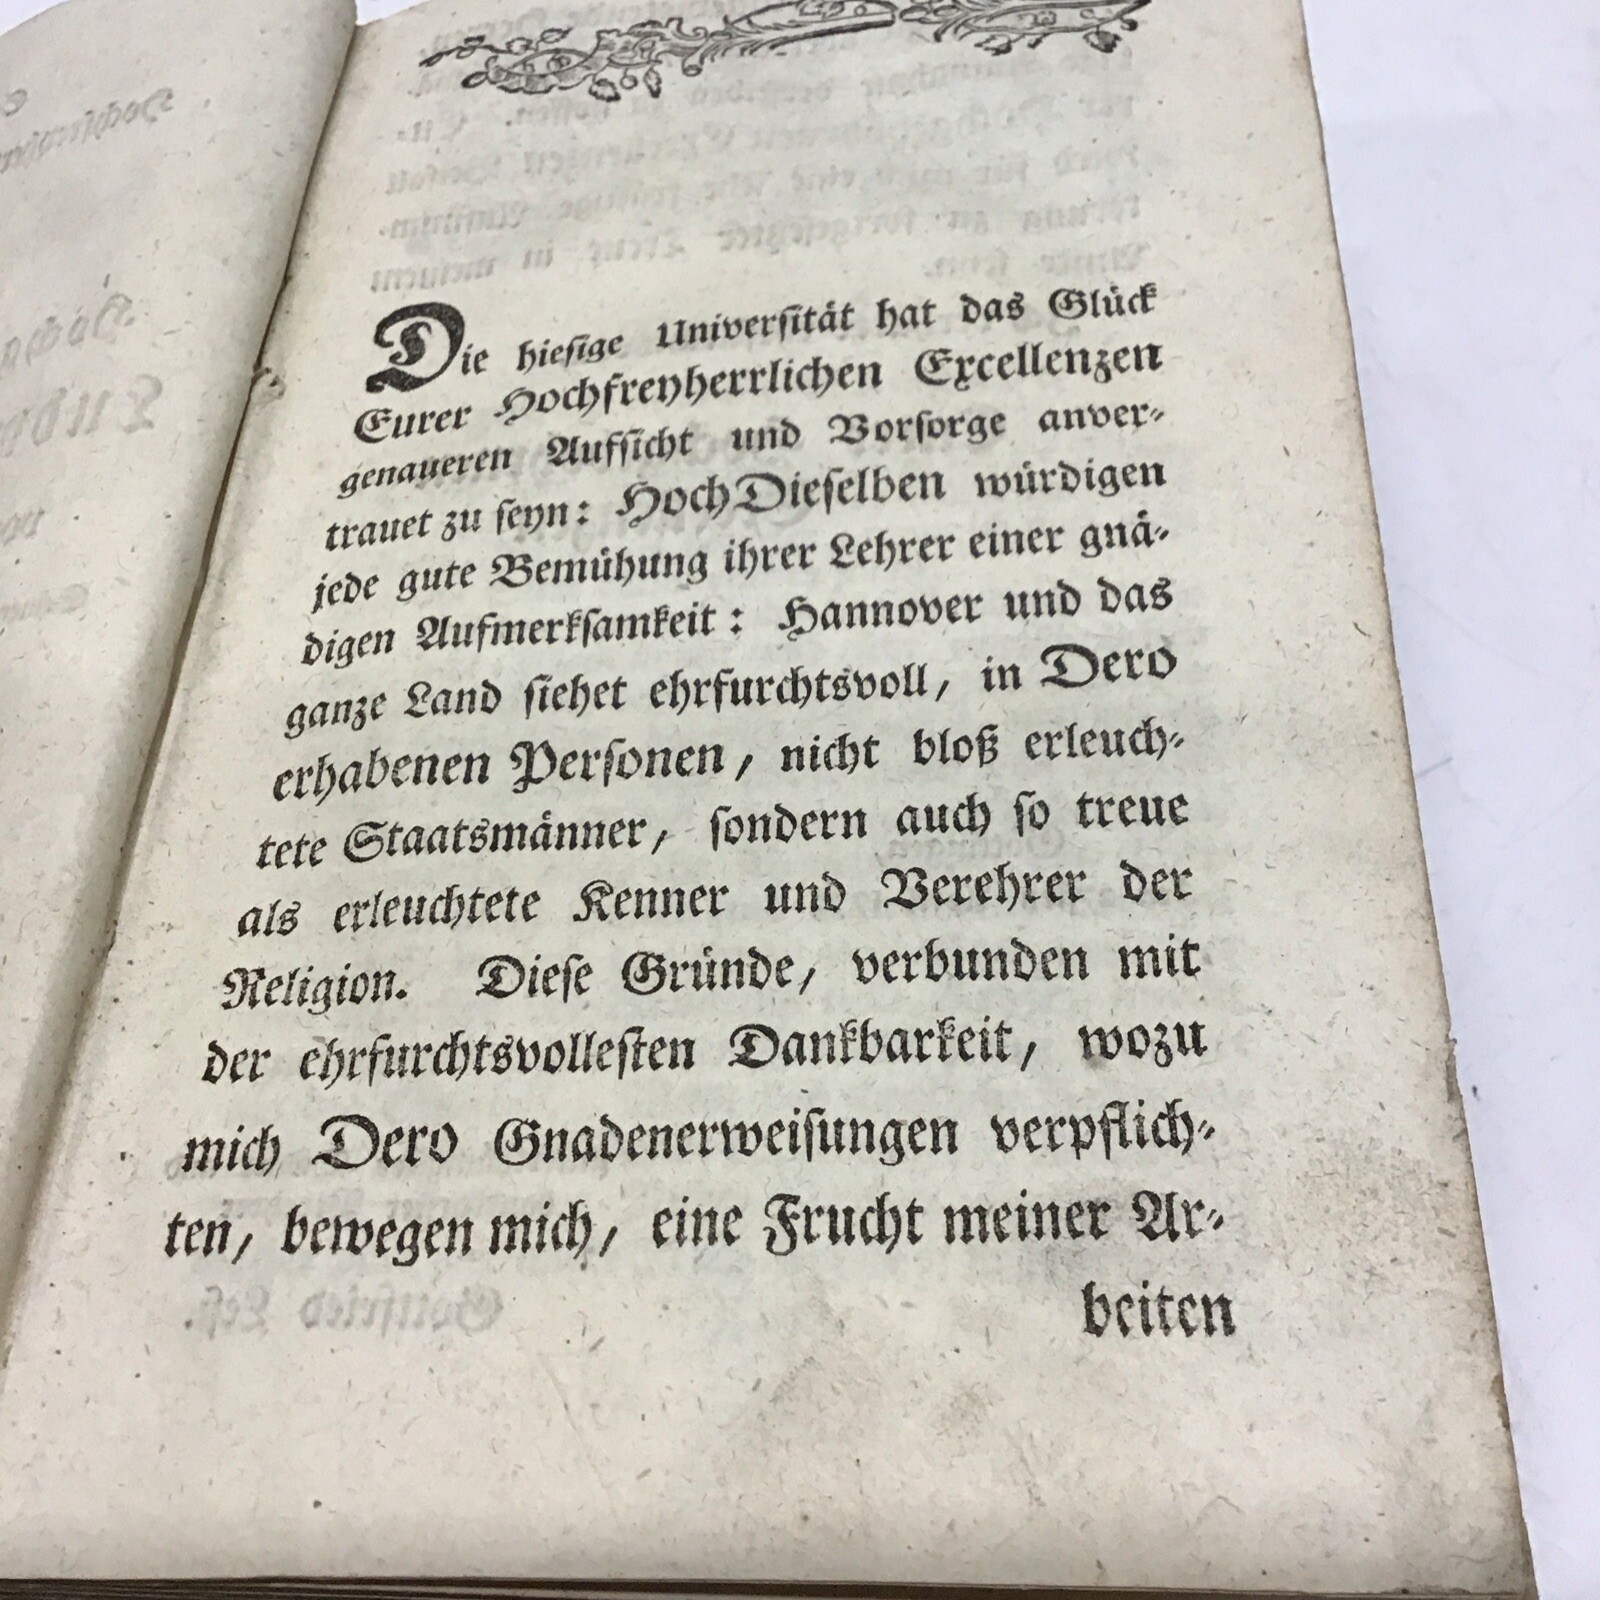 Die hiesige Universität hat das Glück
Eurer Hochfreyherrlichen Excellenzen
genaueren Aufsicht und Vorsorge anver-
trauet zu seyn: HochDieselben würdigen
jede gute Bemühung ihrer Lehrer einer gnä-
digen Aufmerksamkeit: Hannover und das
ganze Land siehet ehrfurchtsvoll, in Dero
erhabenen Personen, nicht bloß erleuch-
tete Staatsmänner, sondern auch so treue
als erleuchtete Kenner und Verehrer der
Religion. Diese Gründe, verbunden mit
der ehrfurchtsvollesten Dankbarkeit, wozu
mich Dero Gnadenerweisungen verpflich-
ten, bewegen mich, eine Frucht meiner Ar-
beiten